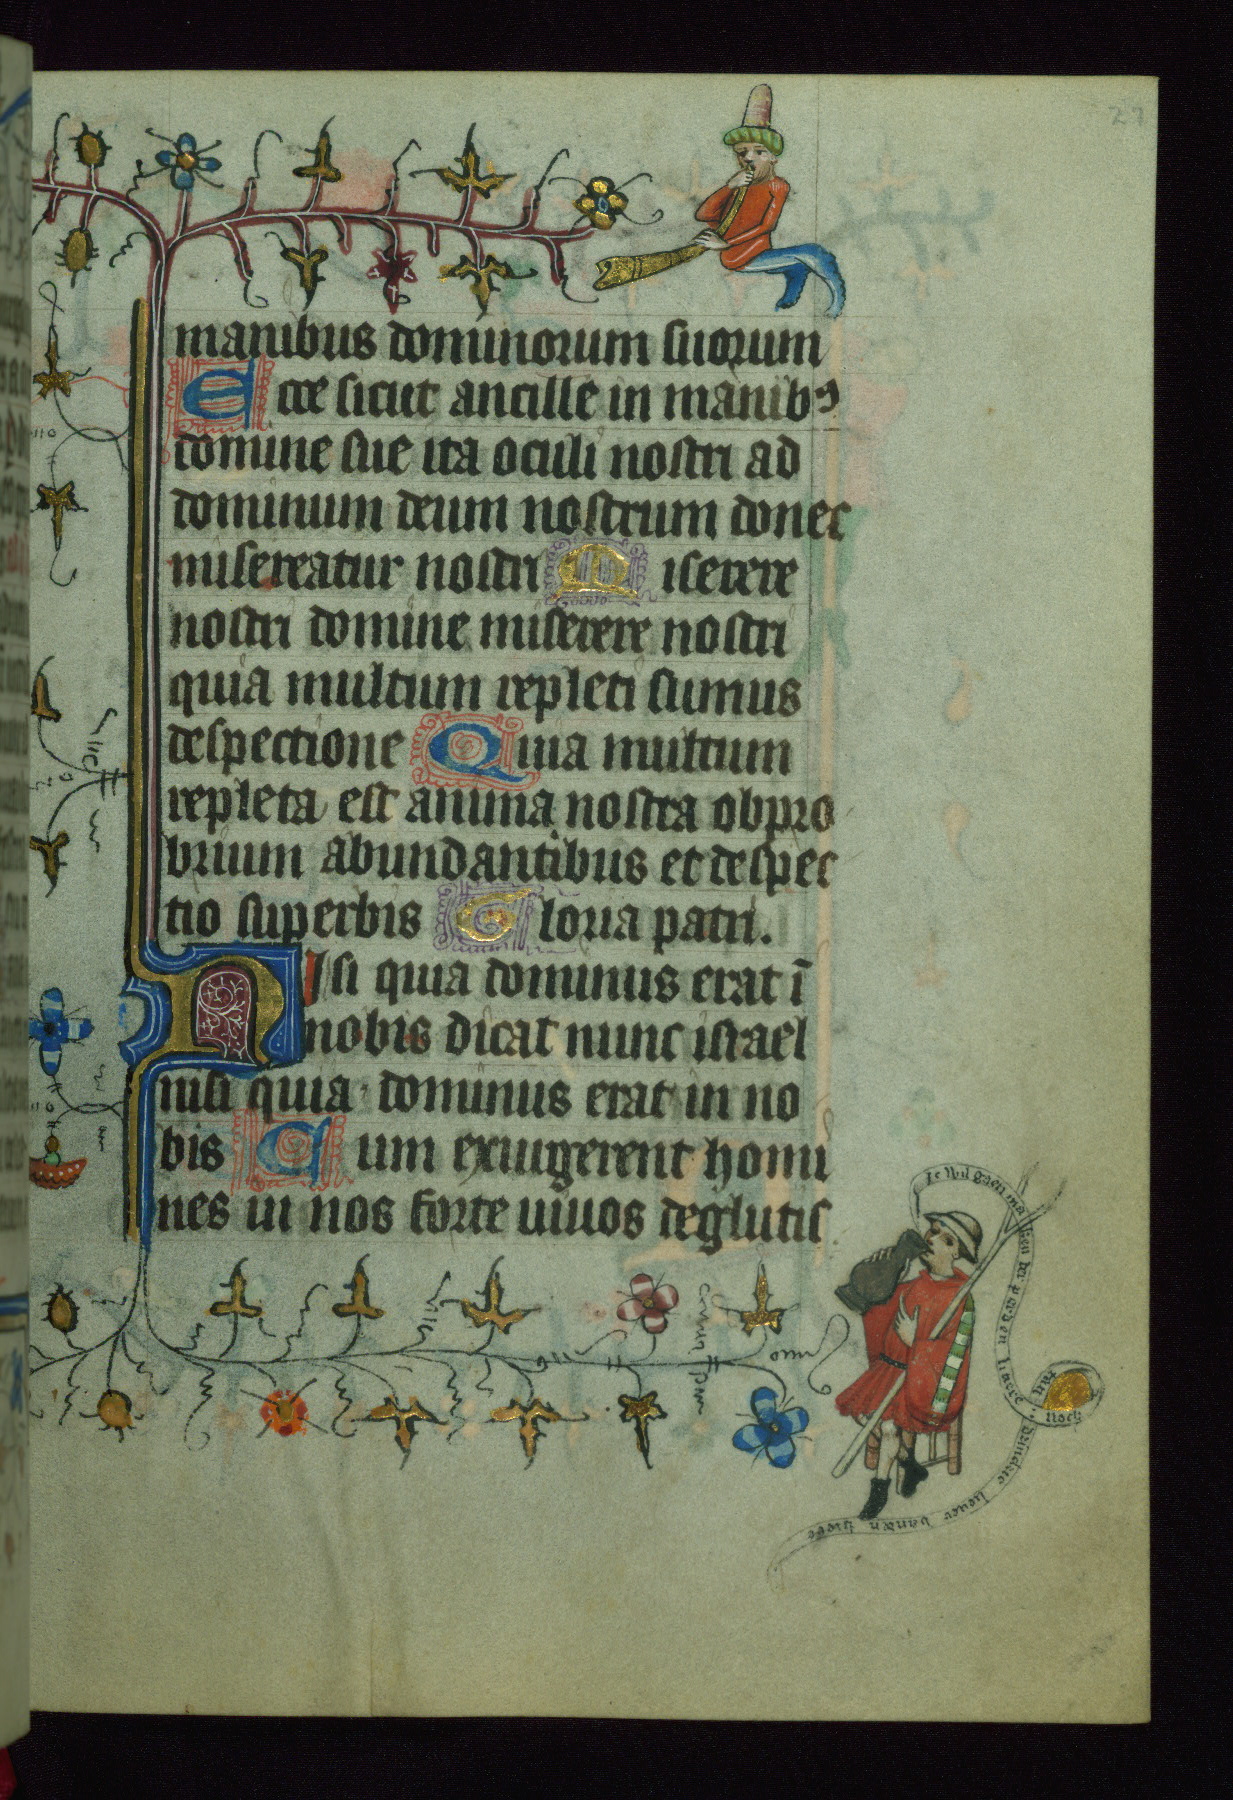 27
manibus dominorum suorum
Ecce sicut ancille in manibꝰ
domine sue ita oculi nostri ad
dominum deum nostrum donec
misereatur nostri Miserere
nostri domine miserere nostri
quia multum repleti sumus
despectione Quia multum
repleta est anima nostra obpro
brium abundantibus et despec
tio superbis Gloria patri.
NIsi quia dominus erat ī
nobis dicat nunc israel
nisi quia dominus erat in no
bis Cum exurgerent homi
nes in nos forte uiuos deglutis
Ic wil gaen
drincke
noch